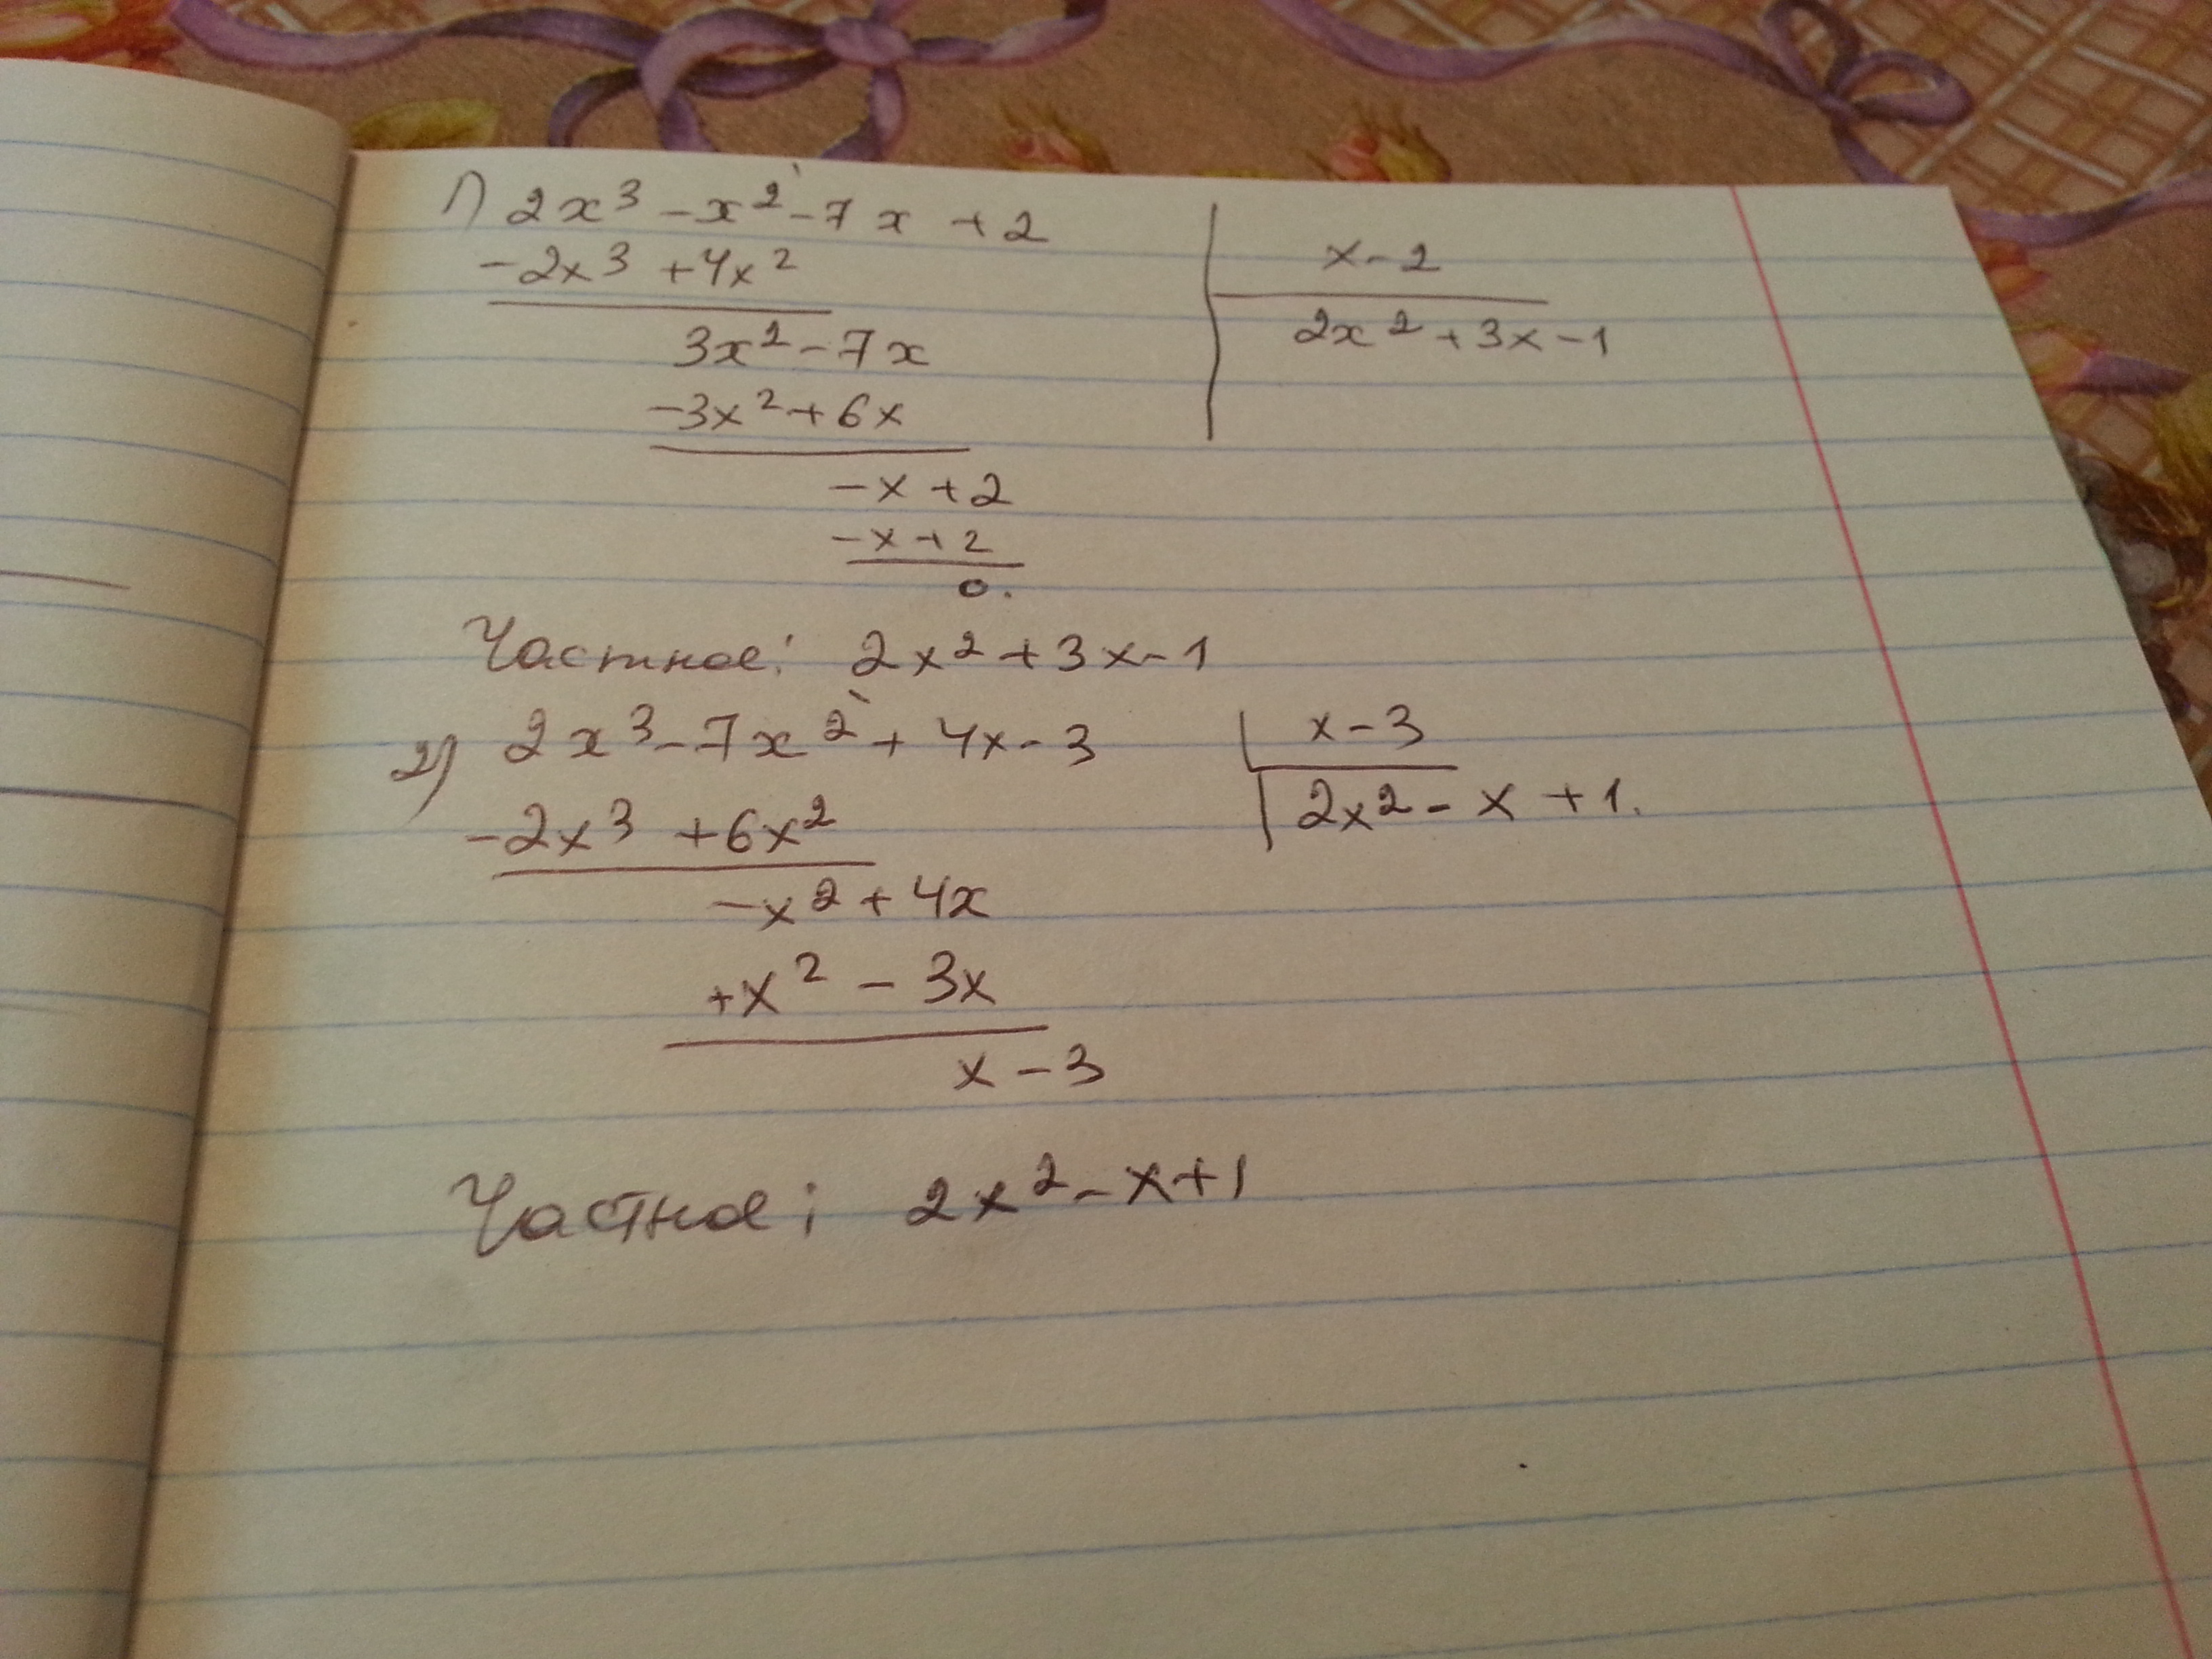 1) 2x³ - x² - 7x + 2 | x - 2
-2x³ + 4x² | 2x² + 3x - 1
3x² - 7x
-3x² + 6x
-x + 2
-x + 2
0.
Частное: 2x² + 3x - 1
2) 2x³ - 7x² + 4x - 3 | x - 3
-2x³ + 6x² | 2x² - x + 1.
-x² + 4x
+x² - 3x
x - 3
Частное: 2x² - x + 1